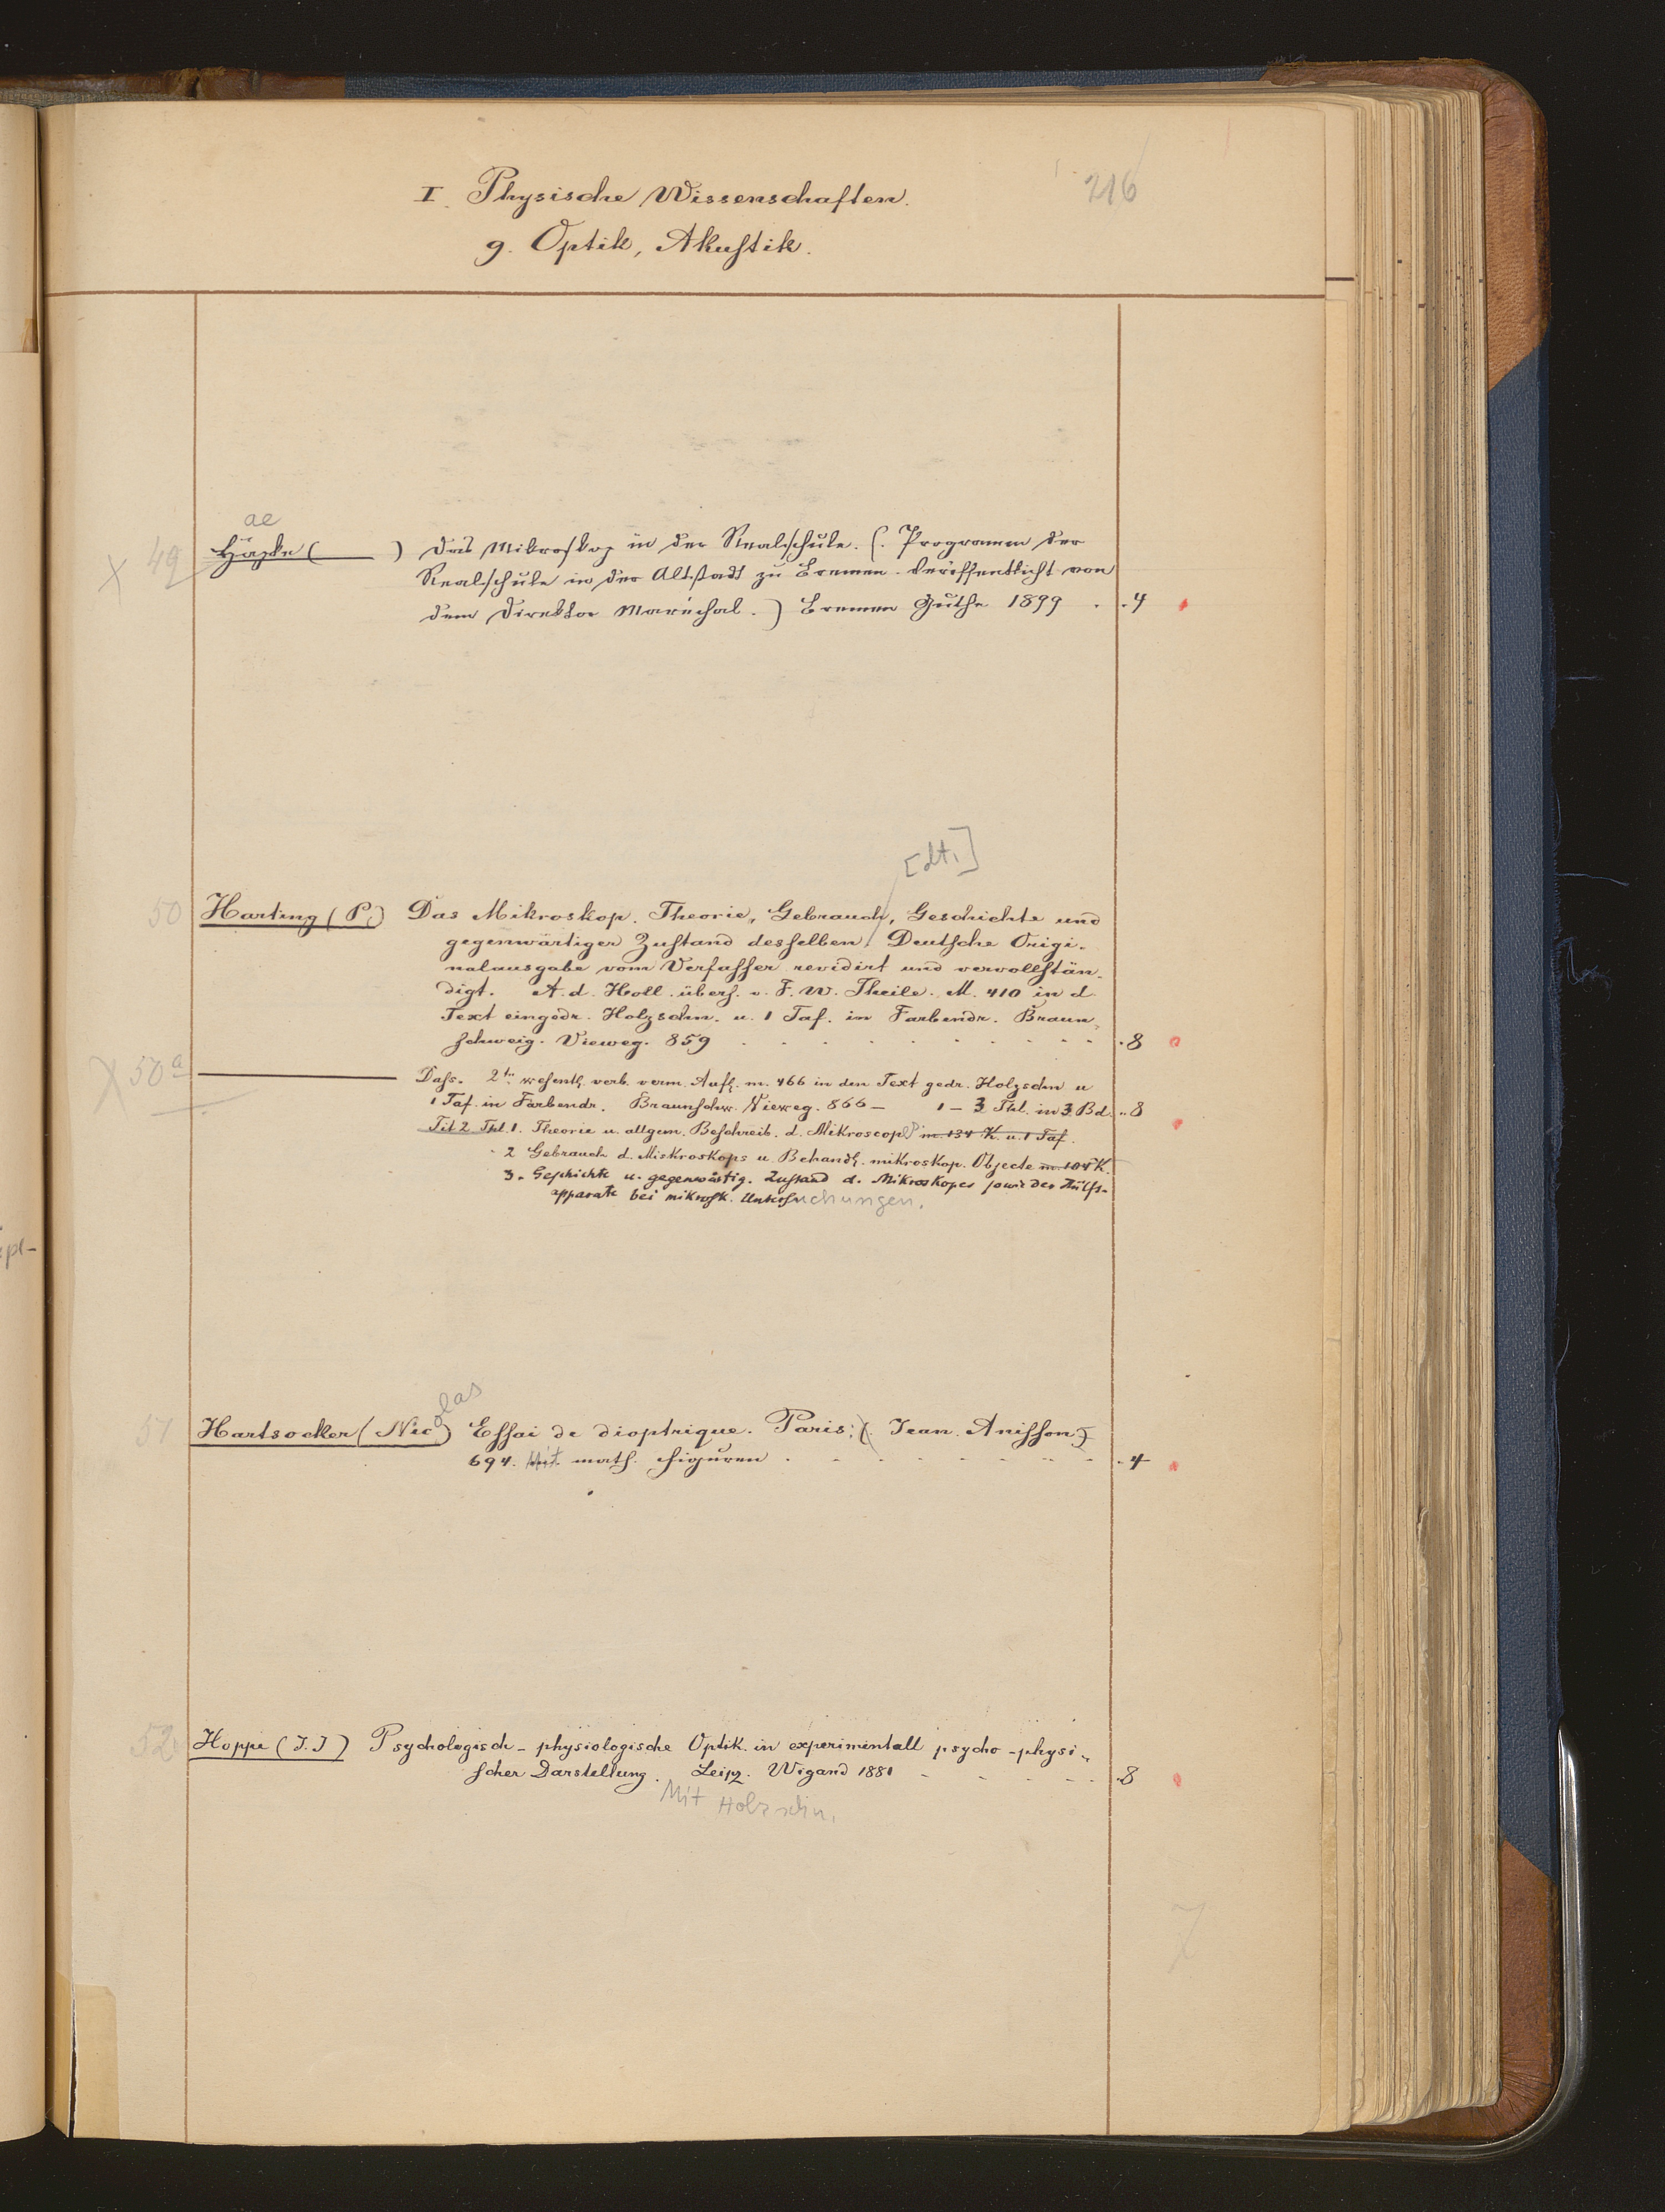 216
I. Physische Wissenschaften.
g. Optik, Akustik.
ae
49 Häpke ( ) Das Mikroskop in der Realschule. (. Programm der
Realschule in der Altstadt zu Bremen. Veröffentlicht von
dem Direktor Maréchal.) Bremen Guthe 1899 . . 4
[dt.]
50 Harting (P.) Das Mikroskop. Theorie, Gebrauch, Geschichte und
gegenwärtiger Zustand desselben. Deutsche Origi-
nalausgabe vom Verfasser revidirt und vervollstän-
digt. A. d. Holl. übers. v. F. W. Theile. M. 410 in d
Text eingedr. Holzschn. u. 1 Taf. in Farbendr. Braun-
schweig. Vieweg. 859 . 8
50a Dass. 2te wesentl. verb. verm. Aufl. m. 466 in den Text gedr. Holzschn u
1 Taf. in Farbendr. Braunschw. Vieweg. 866 – 1 – 3 Thl. in 3 Bd. .. 8
Tit 2 Thl. 1. Theorie u. allgem. Beschreib. d. Mikroscops m. 134 K. u. 1 Taf.
2 Gebrauch d. Miskroskops u. Behandl. mikroskop. Objecte m. 104 K.
3. Geschichte u. gegenwärtig. Zustand d. Mikroskopes sowie der Hülfs-
apparate bei mikrosk. Untersuchungen.
51 Hartsoeker (Nicolas) Essai de dioptrique. Paris: (. Jean. Anisson)
694. Mit math. Figuren . 4
52 Hoppe (J. J) Psychologisch-physiologische Optik in experimentall psycho-physi-
scher Darstellung. Leipz. Wigand 1881 . 8
Mit Holzschn.